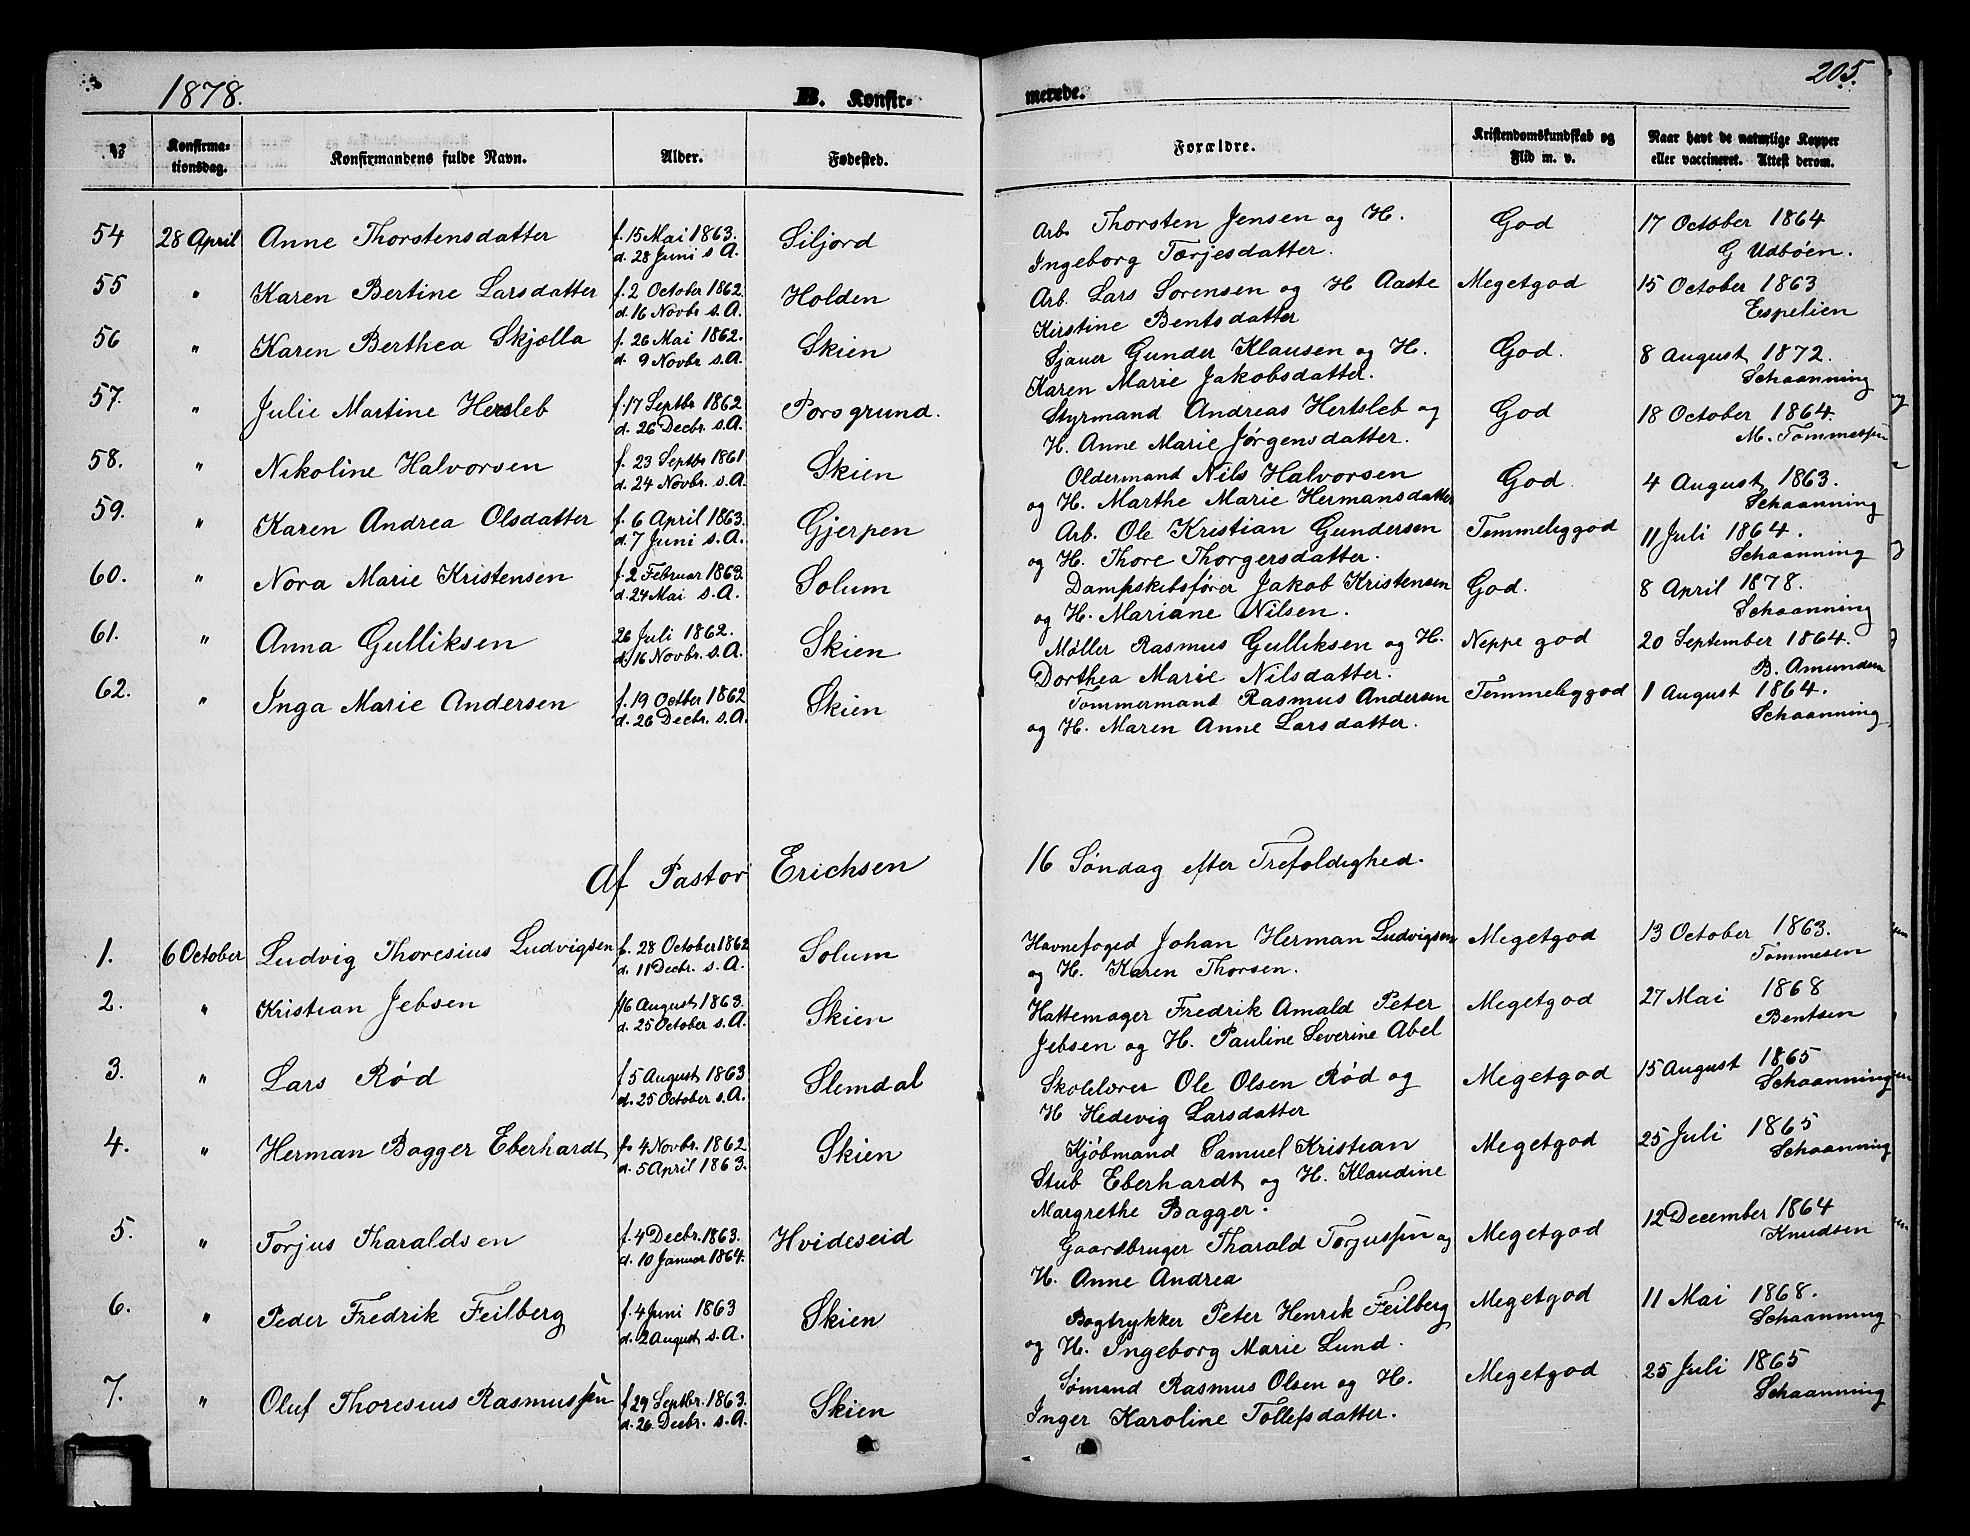 1878.
B. Konfir-
merede.
205.
№
Konfirma-
tionsdag.
Konfirmandens fulde Navn.
Alder.
Fødested.
Forældre.
Kristendomskundskab og
Flid m. v.
Naar havt de naturlige Kopper
eller vaccineret. Attest derom.
54 28 April Anne Thorstensdatter f. 15 Mai 1863. Siljord Arb. Thorsten Jensen og H. God 17 October 1864
d. 28 Juni s A. Ingeborg Tærjesdatter. G Udbøen.
55 " Karen Bertine Larsdatter f. 2 October 1862 Holden Arb. Lars Sørensen og H Aaste Megetgod 15 October 1863
d. 16 Novbr s. A. Kirstine Bentsdatter Espelien
56 " Karen Berthea Skjølla f. 26 Mai 1862. Skien Sjauer Gunder Klausen og H. God. 8 August 1872.
d. 9 Novbr s. A. Karen Marie Jakobsdatter. Schaanning
57. " Julie Martine Hersleb f. 17 Septbr 1862 Porsgrund. Styrmand Andreas Hertsleb og God 18 October 1864.
d. 26 Decbr. s. A. H. Anne Marie Jørgensdatter. M. Tommesen
58. " Nikoline Halvorsen f. 23 Septbr 1861 Skien Oldermand Nils Halvorsen God. 4 August 1863.
d. 24 Novbr. s. A. og H. Marthe Marie Hermansdatter Schaanning
59. " Karen Andrea Olsdatter f. 6 April 1863. Gjerpen Arb. Ole Kristian Gundersen Temmeliggod 11 Juli 1864.
d. 7 Juni s. A. og H. Thore Thorgersdatter. Schaanning
60. " Nora Marie Kristensen f. 2 Februar 1863. Solum Dampskibsfører Jakob Kristensen God. 8 April 1878.
d. 24 Mai s. A. og H. Mariane Nilsen. Schaanning
61. " Anna Gulliksen 26 Juli 1862. Skien Møller Rasmus Gulliksen og H. Neppe god 20 September 1864.
d. 16 Novbr. s. A. Dorthea Marie Nilsdatter. B. Amundsen
62. " Inga Marie Andersen f. 19 Octbr 1862 Skien Tømmermand Rasmus Andersen Temmeliggod 1 August 1864.
d. 26 Decbr. s. A. og H. Maren Anne Larsdatter. Schaanning
Af Pastor Erichsen 16 Søndag efter Trefoldighed.
1. 6 October Ludvig Thoresius Ludvigsen f. 28 October 1862 Solum Havnefoged Johan Herman Ludvigsen Megetgod 13 October 1863.
d. 11 Decbr. s. A. og H. Karen Thorsen. Tommesen
2. " Kristian Jebsen f 16 August 1863. Skien Hattemager Fredrik Amald Peter Megetgod 27 Mai 1868
d. 25 October s. A. Jebsen og H. Pauline Severine Abel Bentsen
3. " Lars Rød f 5 August 1863 Slemdal Skolelærer Ole Olsen Rød og Megetgod 15 August 1865
d. 25 October s. A. H Hedevig Larsdatter Schaanning
4. " Herman Bagger Eberhardt f. 4 Novbr. 1862 Skien Kjøbmand Samuel Kristian Megetgod 25 Juli 1865
d. 5 April 1863. Stub Eberhardt og H. Klaudine Schaanning
Margrethe Bagger.
5. " Torjus Tharaldsen f. 4 Decbr. 1863. Hvideseid Gaardbruger Tharald Torjussen og Megetgod 12 December 1864
d. 10 Januar 1864. H. Anne Andrea Knudsen
6. " Peder Fredrik Feilberg f. 4 Juni 1863 Skien Bogtrykker Peter Henrik Feilberg Megetgod 11 Mai 1868.
d. 2 August s. A. og H. Ingeborg Marie Lund. Schaanning
7. " Oluf Thoresius Rasmussen f 29 Septbr. 1863. Skien Sømand Rasmus Olsen og H. Megetgod 25 Juli 1865
d. 26. Decbr. s. A. Inger Karoline Tollefsdatter. Schaanning